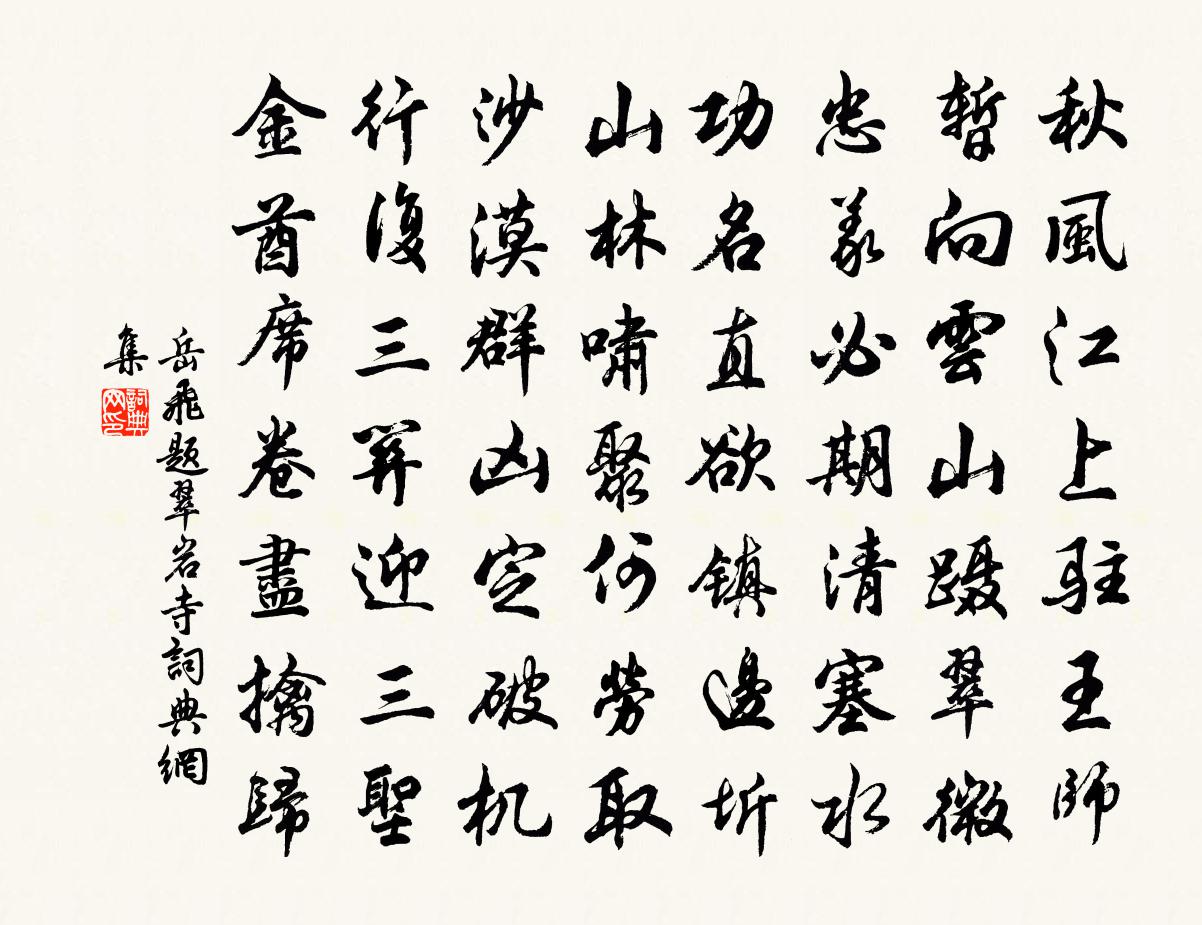 秋風江上駐王師
暫向雲山躡翠微
忠義必期清塞水
功名直欲鎮邊圻
山林嘯聚何勞取
沙漠群凶定破机
行復三關迎三聖
金酋席卷盡擒歸
岳飛題翠岩寺詞典網
集
詞典
网印